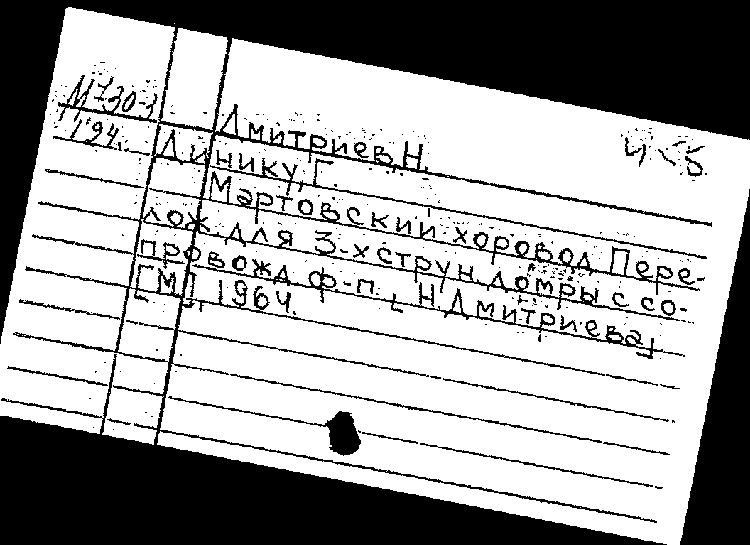 М730-1
194.
Дмитриев, Н.
4-5
Динику, Г.
Мартовский хоровод Пере-
лож. для 3-х струн. домры с со-
провожд. ф-п. [Н. Дмитриева]
[М], 1964.